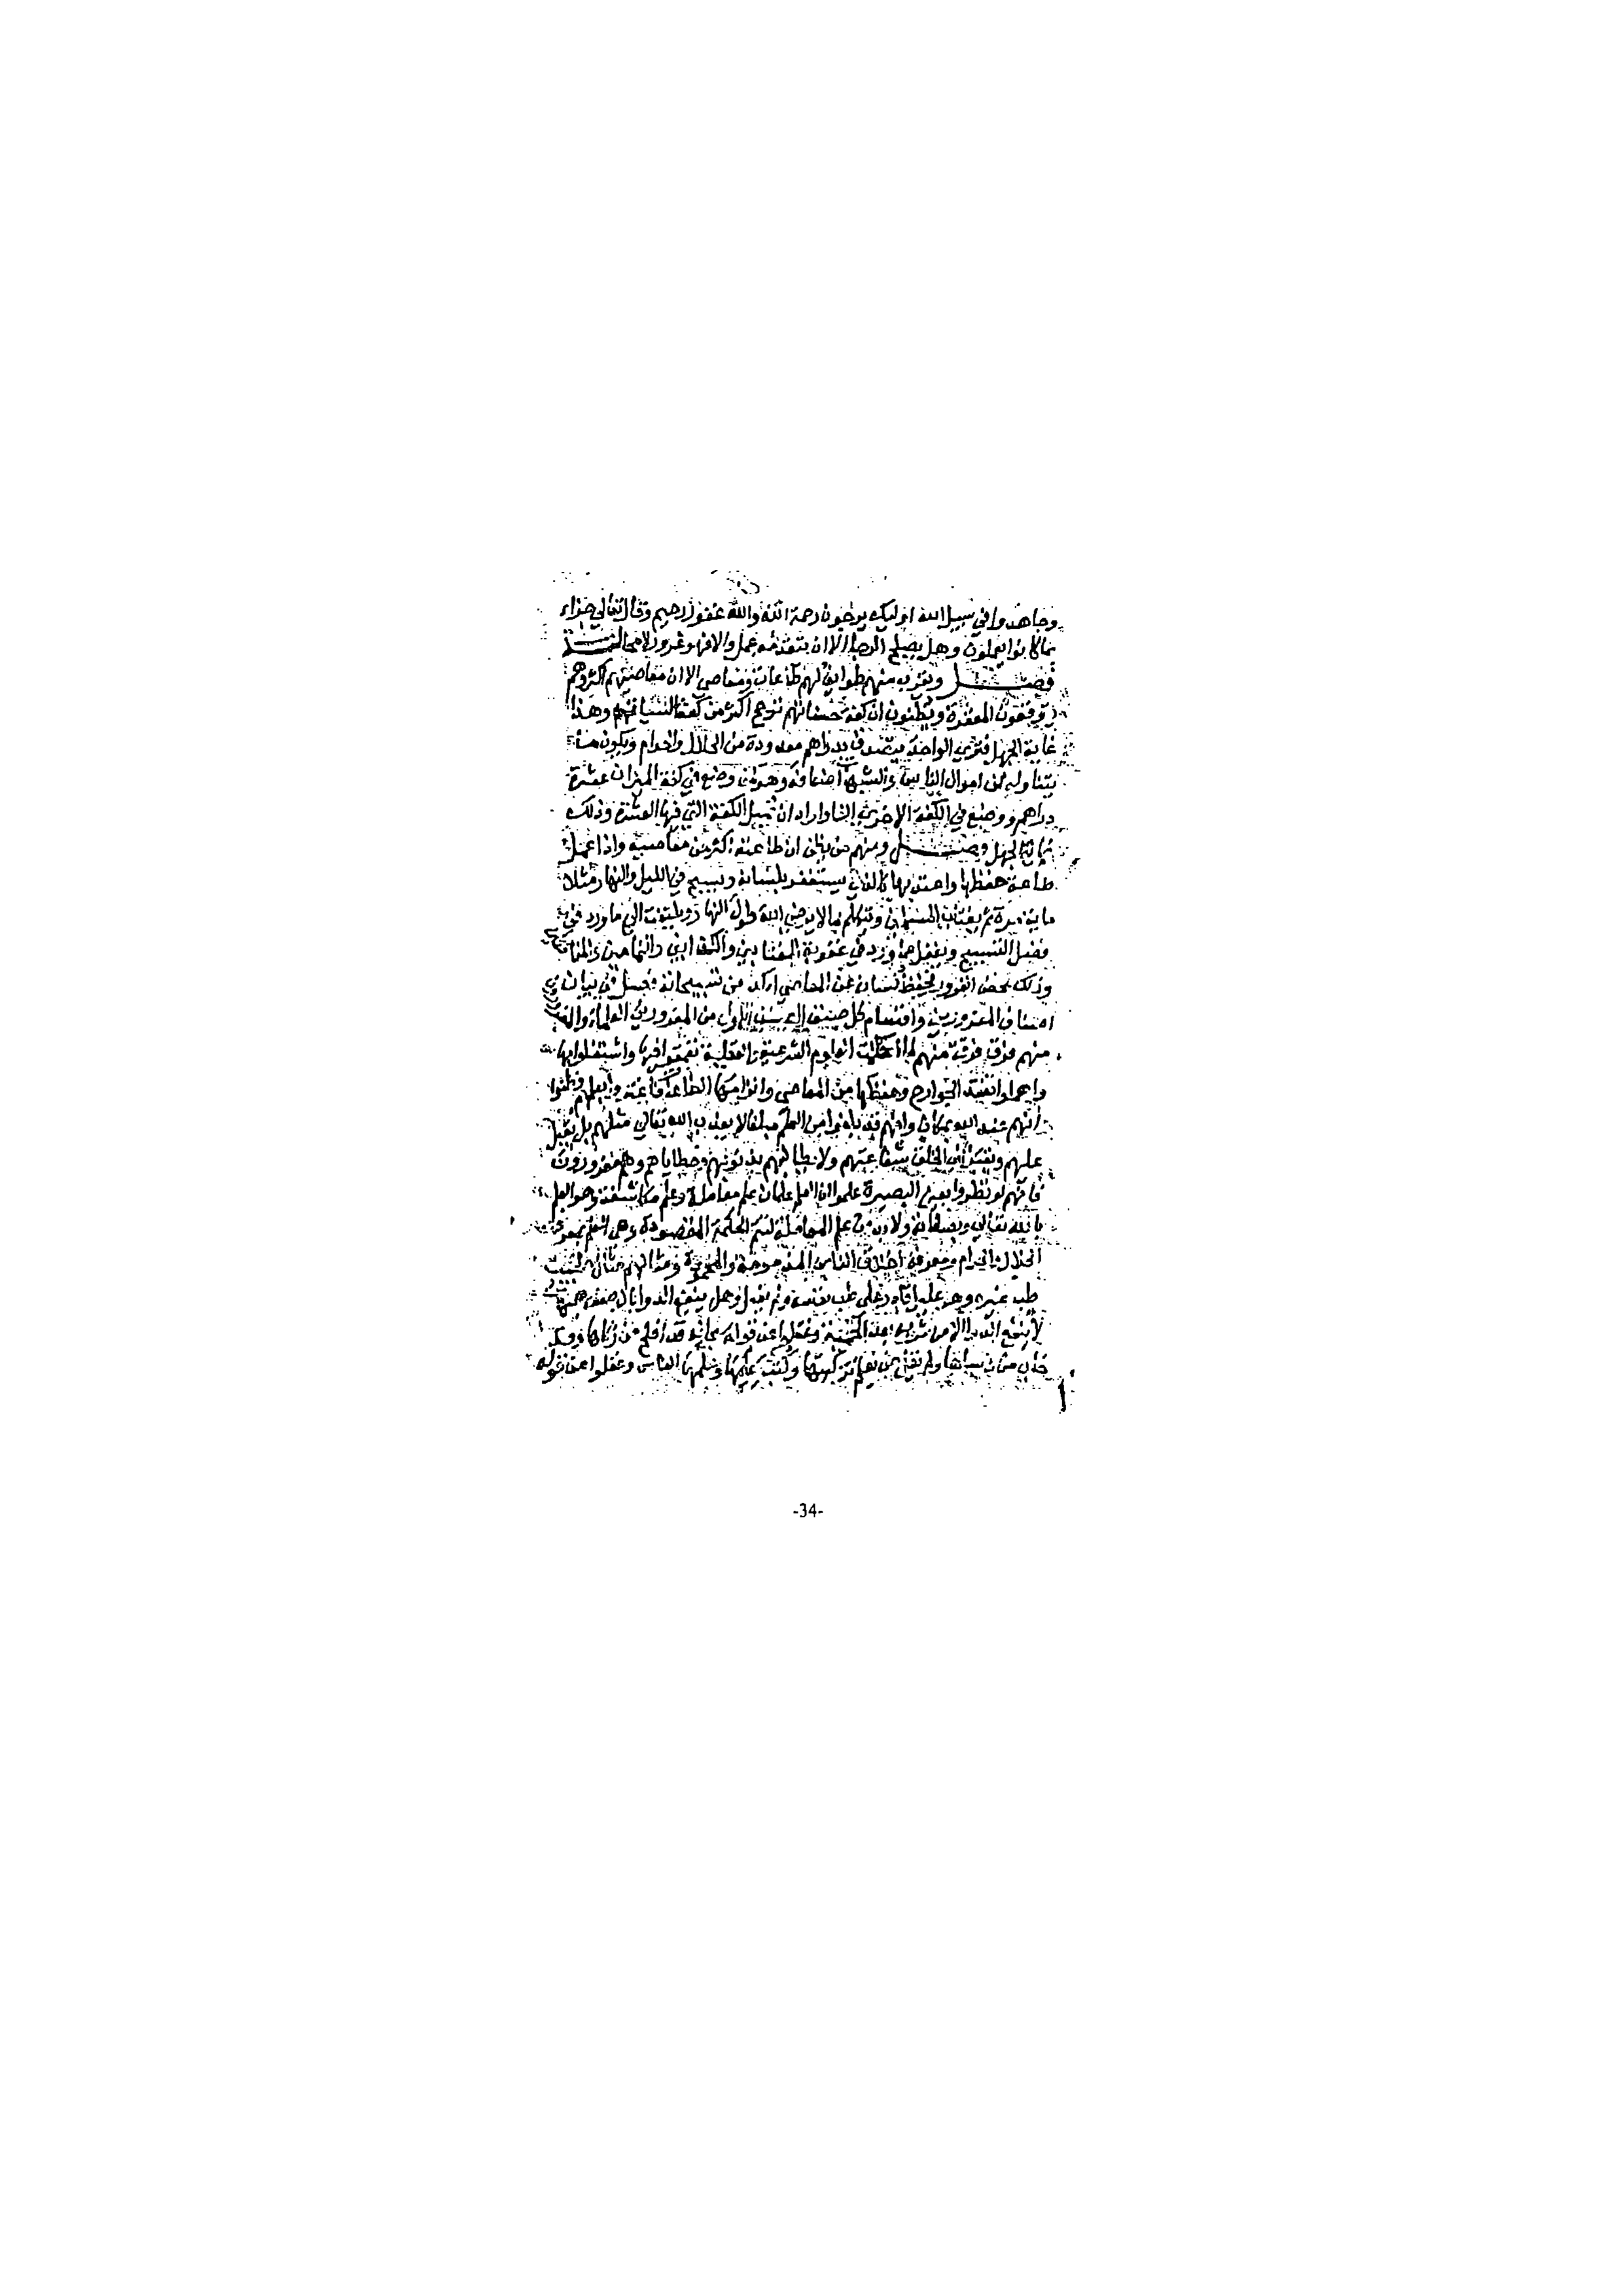 وجاهدوا في سبيل الله اوليك يرجون رحمة الله والله غفور رحيم وقال تعالى جزاء
بما كانوا يعملون وهل يصلح الرجا الا ان يتقدمه عمل والا فهو غرور لا محالة
فصل ويقرب منهم طوايف لهم طاعات ومعاصي الا ان معاصيهم اكثر وهم
يتوقعون المغفرة ويظنون ان كفة حسناتهم ترجح اكثر من كفة السيات وهذا
غاية الجهل فترى الواحد يتصدق بدراهم معدودة من الحلال والحرام ويكون ما
يتناوله من اموال الناس والشبهة اضعافه وهو كمن وضع في كفة الميزان عشرة
دراهم ووضع في الكفة الاخرى الفا واراد ان تميل الكفة التي فيها العشرة وذلك
غاية الجهل فصل ومنهم من يظن ان طاعته اكثر من معاصيه واذا عمل
طاعة حفظها واعتد بها كالذي يستغفر بلسانه ويسبح في الليل والنهار مثلا
ماية مرة ثم يغتاب المسلمين ويتكلم بما لا يرضي الله طول النهار ويلتفت الى ما ورد في
فضل التسبيح ويغفل عما ورد في عقوبة المغتابين والكذابين والنمامين والمنافقين
وذلك محض الغرور فحفظ لسانه عن المعاصي اكد من تسبيحاته فصل في بيان
اصناف المغرورين واقسام كل صنف الاول من المغرورين العلماء
منهم فرق فرقة منهم لما احكمت العلوم الشرعية والعقلية تعمقوا فيها واشتغلوا بها
واهملوا تفقد الجوارح وحفظها من المعاصي والزامها الطاعة وظنوا
انهم عند الله بمكان وانهم قد بلغوا من العلم مبلغا لا يعذب الله تعالى مثلهم بل يقبل
عليهم ويقبل في الخلق شفاعتهم ولا يطالبهم بذنوبهم وخطاياهم وهم مغرورون
فانهم لو نظروا بعين البصيرة علموا ان العلم علمان علم معاملة وعلم مكاشفة وهو العلم
بالله تعالى وبصفاته ولابد من علم المعاملة لتتم الحكمة المقصودة وهي
الحلال والحرام ومعرفة اخلاق الناس المذمومة والمحمودة ومثالهم مثال طبيب
طب غيره وهو عليل قادر على طب نفسه ولم يفعل وهل ينفع الدوا بالوصف هيهات
لا ينفع الدوا الا من شربه بعد الحمية وغفلوا عن قوله سبحانه قد افلح من زكاها وقد
خاب من دساها ولم يقل من يعلم تزكيتها وكتب علمها وعلمها الناس وغفلوا عن قوله
-34-